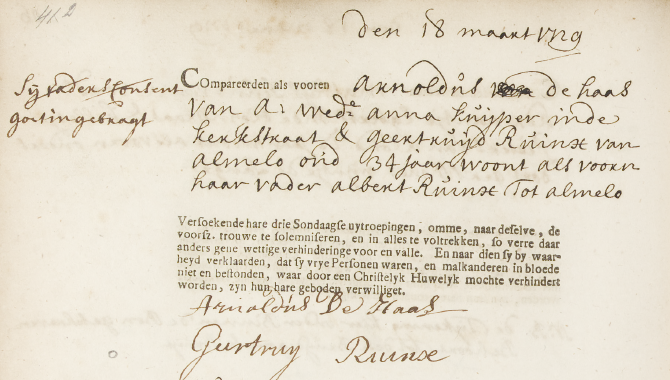 41.2
den 18 maart 1729
Sy vaders Consent
goet ingebragt
COmpareerden als vooren Arnoldus de haas
van A: wedr anna kuijper inde
kerkstraat & geertruijd Ruinx van
almelo oud 34 jaar woont als voorn
haar vader albert Ruinx Tot almelo
Versoekende hare drie Sondaagse uytroepingen, omme, naar deselve, de
voorsz. trouwe te solemniseren, en in alles te voltrekken, so verre daar
anders gene wettige verhinderinge voor en valle. En naar dien sy by waar-
heyd verklaarden, dat sy vrye Personen waren, en malkanderen in bloede
niet en bestonden, waar door een Christelyk Huwelyk mochte verhindert
worden, zyn hun hare geboden verwilliget.
Arnoldus De Haas
Gertruy Ruinx